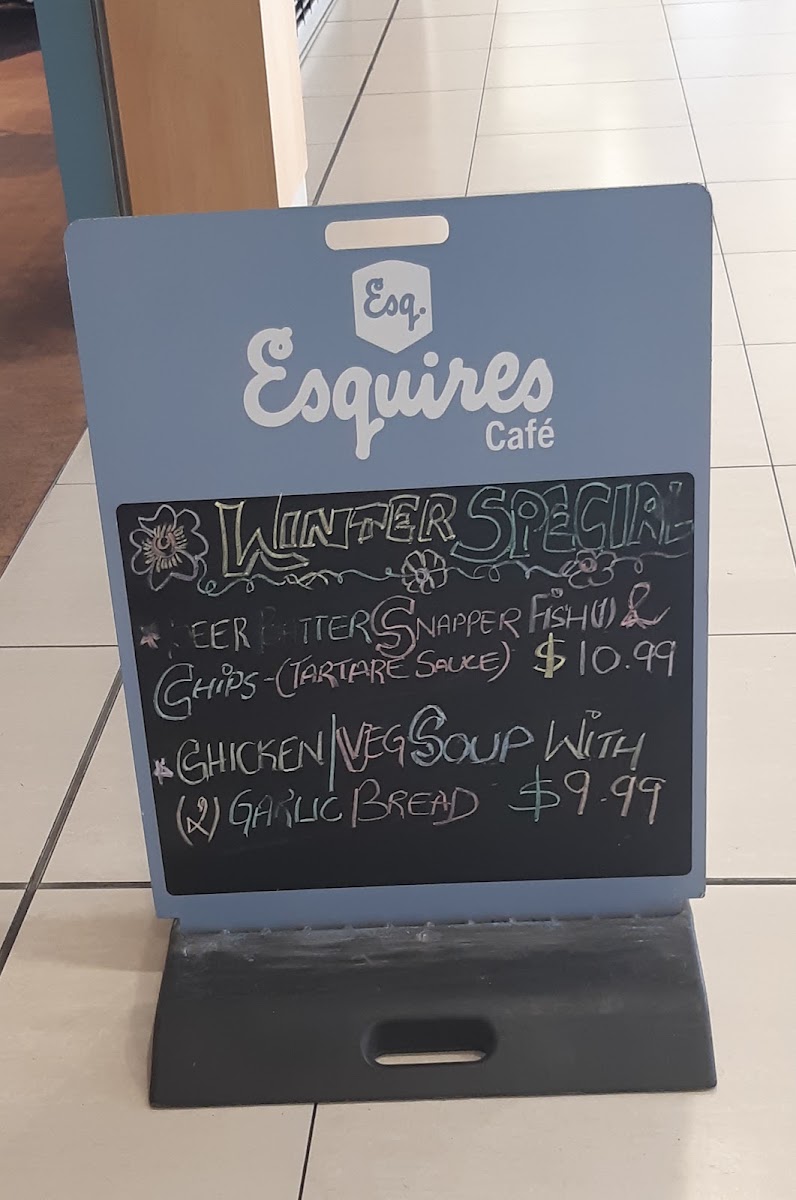 Esq.
Esquires
Café
WINTER SPECIAL
* BEER BATTER SNAPPER FISH (1) &
CHIPS - (TARTARE SAUCE) $10.99
* CHICKEN/VEG SOUP WITH
(2) GARLIC BREAD $9.99